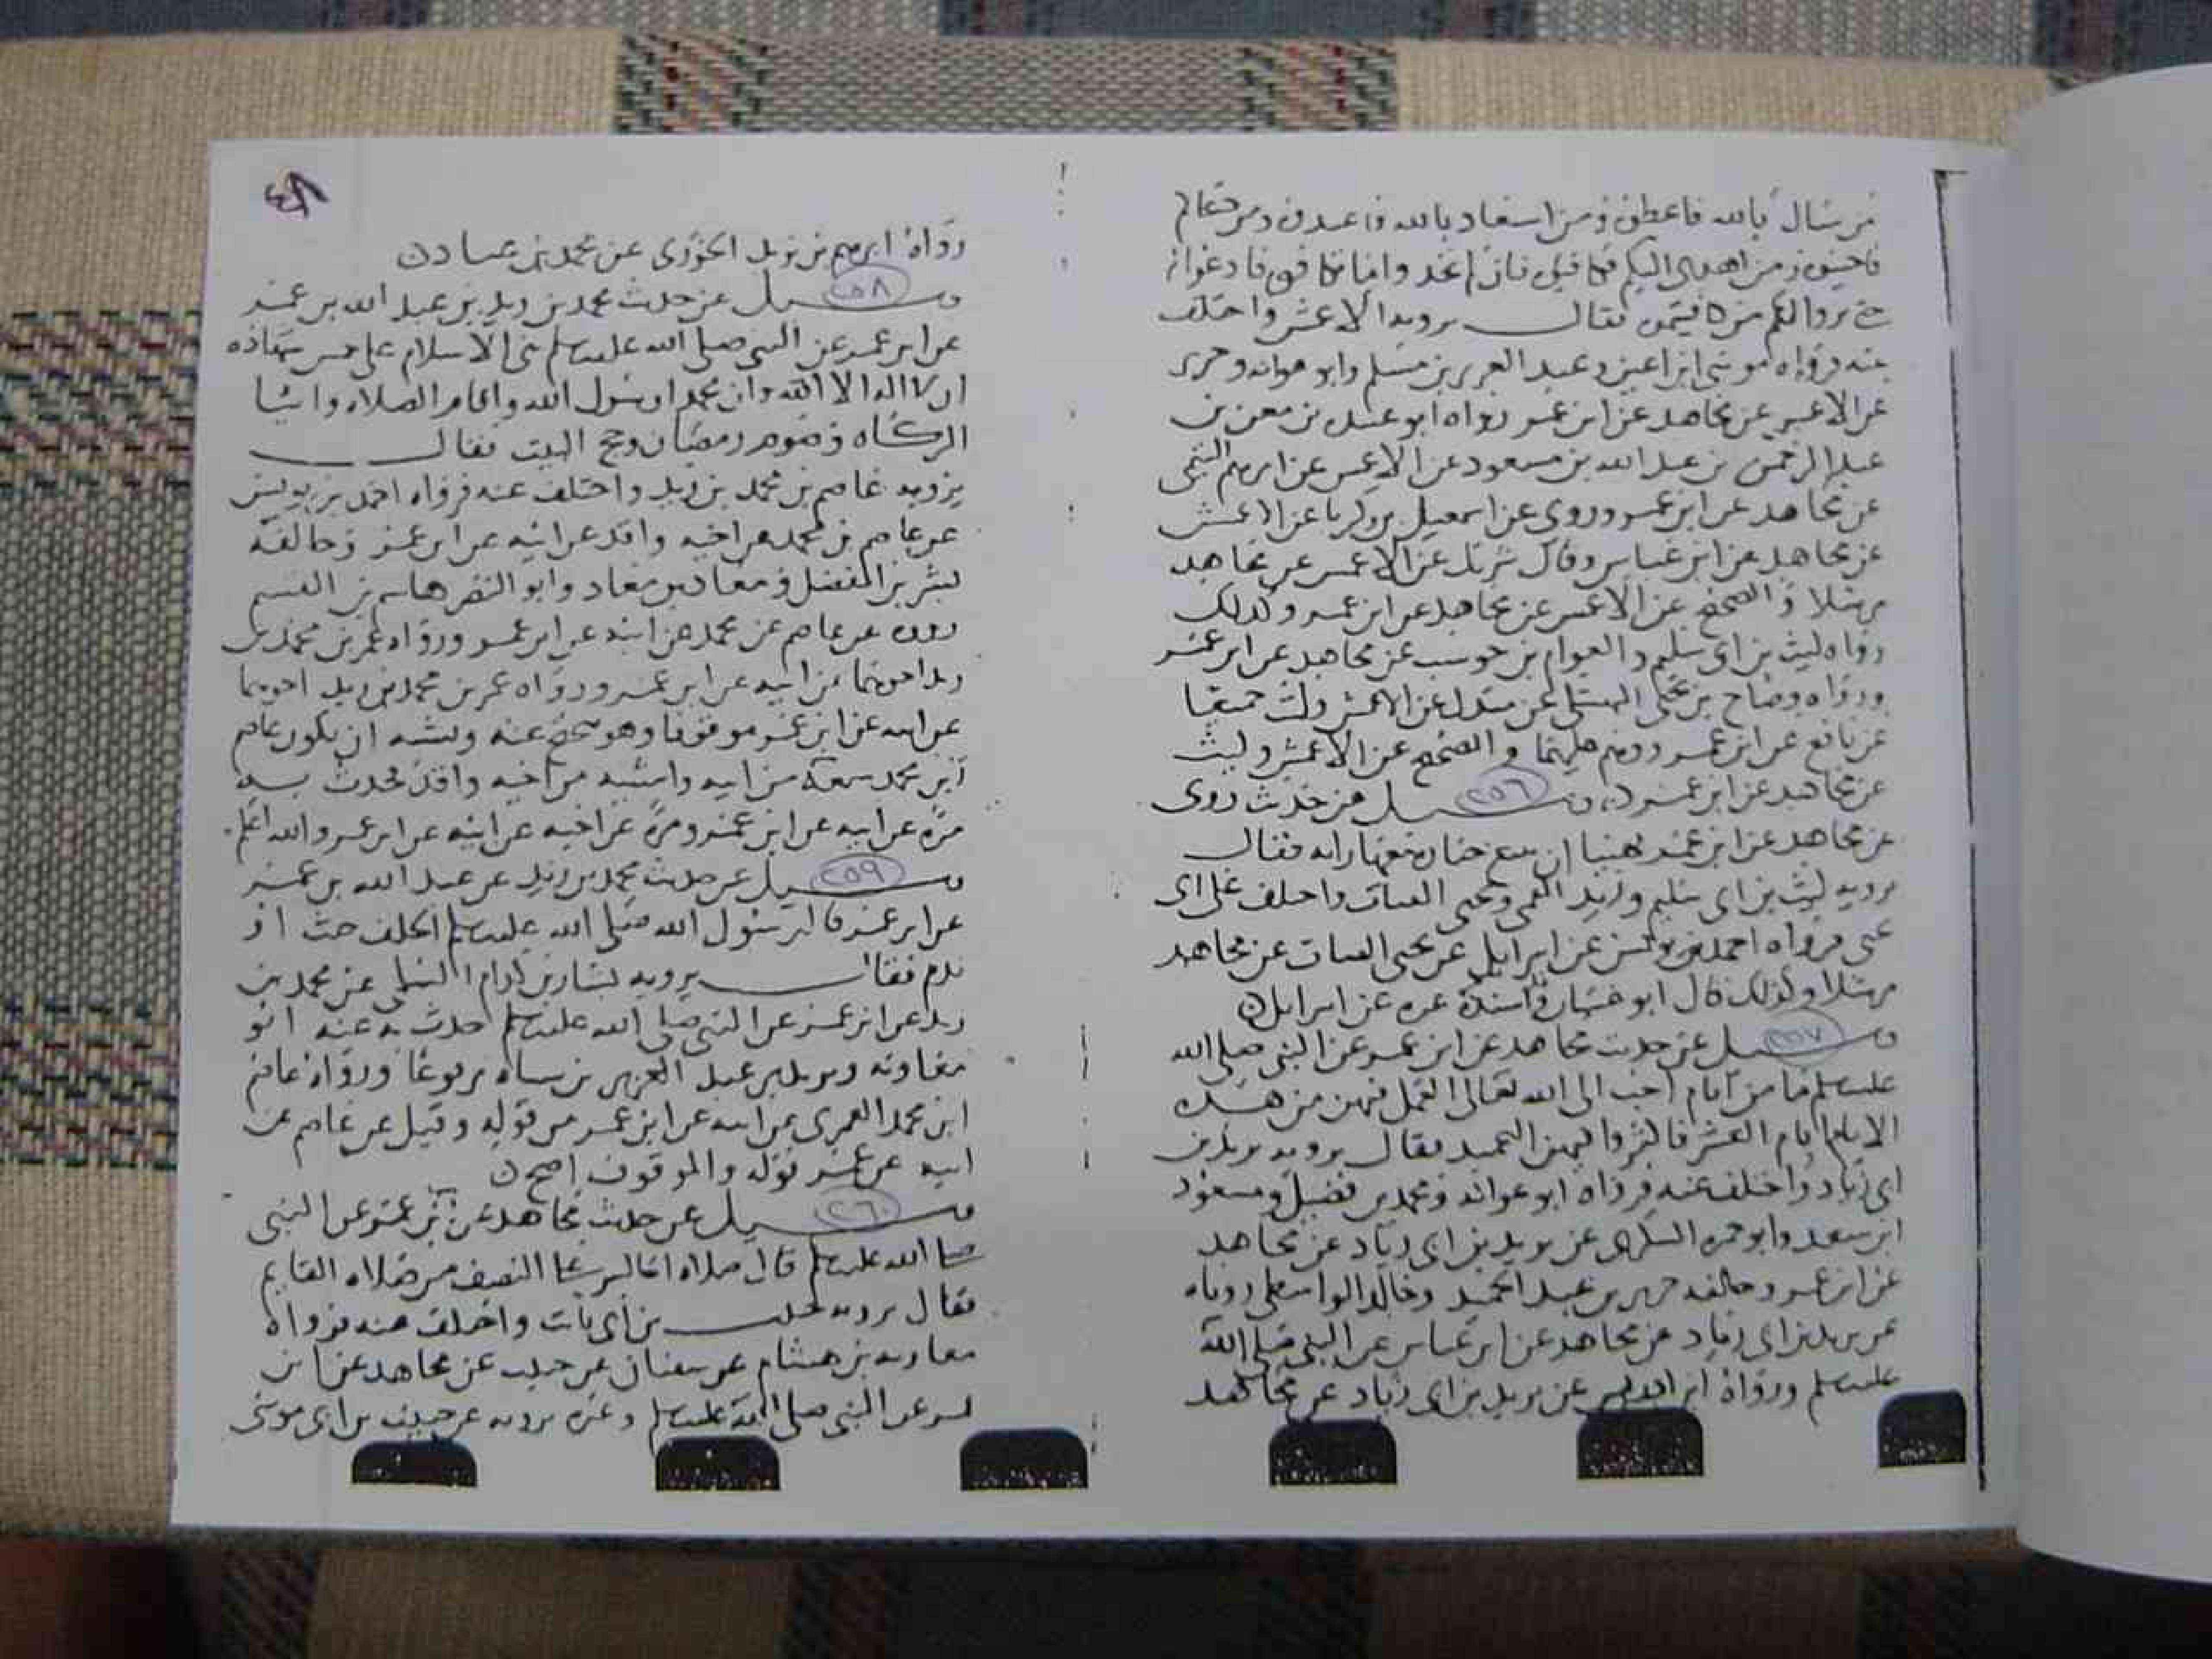 من سال بالله فاعطوه ومن استعاذ بالله فاعيذوه ومن دعاكم
فاجيبوه ومن اهدى اليكم فكافيوه فان لم تجدوا ما تكافوه فادعوا له
حتى تروا انكم قد كافيتموه فقال يرويه الاعمش واختلف
عنه فرواه موسى بن اعين وعبد العزيز بن مسلم وابو عوانه وجرير
عن الاعمش عن مجاهد عن ابن عمر رواه ابو عبيده بن معن بن
عبد الرحمن بن عبد الله بن مسعود عن الاعمش عن ابرهيم التيمي
عن مجاهد عن ابن عمر وروى عن اسمعيل بن زكريا عن الاعمش
عن مجاهد عن ابن عباس وقال شريك عن الاعمش عن مجاهد
مرسلا والصحيح عن الاعمش عن مجاهد عن ابن عمر وكذلك
رواه ليث بن ابي سليم والعوام بن حوشب عن مجاهد عن ابن عمر
ورواه وضاح بن يحيى النهشلي عن مندل عن الاعمش وليث جميعا
عن نافع عن ابن عمر ووهم عليهما والصحيح عن الاعمش وليث
عن مجاهد عن ابن عمر ٢٥٦ وسيل عن حديث روى
عن مجاهد عن ابن عمر نهينا ان نتبع جنازه معها رانه فقال
يرويه ليث بن ابي سليم وابو يحيى القتات واختلف على ابي
يحيى فرواه احمد بن يونس عن اسرايل عن يحيى القتات عن مجاهد
مرسلا وكذلك قال ابو غسان واسنده غيره عن اسرايل
٢٥٧ وسيل عن حديث مجاهد عن ابن عمر عن النبي صلى الله
عليه وسلم ما من ايام احب الى الله تعالى العمل فيهن من هذه
الايام ايام العشر فاكثروا فيهن التحميد فقال يرويه يزيد بن
ابي زياد واختلف عنه فرواه ابو عوانه ومحمد بن فضيل ومسعود
ابن سعد وابو حمزه السكري عن يزيد بن ابي زياد عن مجاهد
عن ابن عمر وخالفه جرير بن عبد الحميد وخالد الواسطي روياه
عن يزيد بن ابي زياد عن مجاهد عن ابن عباس عن النبي صلى الله
عليه وسلم ورواه ابن ادريس عن يزيد بن ابي زياد عن مجاهد
رواه ابرهيم بن يزيد الخوزي عن محمد بن عباد
٢٥٨ وسيل عن حديث محمد بن زيد بن عبد الله بن عمر
عن ابن عمر عن النبي صلى الله عليه وسلم بني الاسلام على خمس شهاده
ان لا اله الا الله وان محمدا رسول الله واقام الصلاه وايتا
الزكاه وصوم رمضان وحج البيت فقال
يرويه عاصم بن محمد بن زيد واختلف عنه فرواه احمد بن يونس
عن عاصم بن محمد عن اخيه واقد عن ابيه عن ابن عمر وخالفه
بشر بن المفضل ومعاذ بن معاذ وابو النضر هاشم بن القسم
رووه عن عاصم عن محمد عن ابيه عن ابن عمر ورواه عمر بن محمد بن
زيد اخوهما عن ابيه عن ابن عمر ورواه عمر بن محمد بن زيد اخوهما
عن ابيه عن ابن عمر موقوفا وهو صحيح عنه ويشبه ان يكون عاصم
ابن محمد سمعه من ابيه واثبته من اخيه واقد فحدث به
مره عن ابيه عن ابن عمر ومره عن اخيه عن ابيه عن ابن عمر والله اعلم
٢٥٩ وسيل عن حديث محمد بن زيد عن عبد الله بن عمر
عن ابن عمر قال رسول الله صلى الله عليه وسلم الحلف حنث او
ندم فقال يرويه بشار بن كدام السلمي عن محمد بن
زيد عن ابن عمر عن النبي صلى الله عليه وسلم حدث به عنه ابو
معاويه ويزيد بن عبد العزيز بن سياه مرفوعا ورواه عاصم
ابن محمد العمري عن ابيه عن ابن عمر من قوله وقيل عن عاصم عن
ابيه عن عمر قوله والموقوف اصح
٢٦٠ وسيل عن حديث مجاهد عن ابن عمر عن النبي
صلى الله عليه وسلم قال صلاه الجالس على النصف من صلاه القايم
فقال يرويه حبيب بن ابي ثابت واختلف عنه فرواه
معاويه بن هشام عن سفيان عن حبيب عن مجاهد عن ابن
عمر عن النبي صلى الله عليه وسلم وغيره يرويه عن حبيب عن ابي موسى